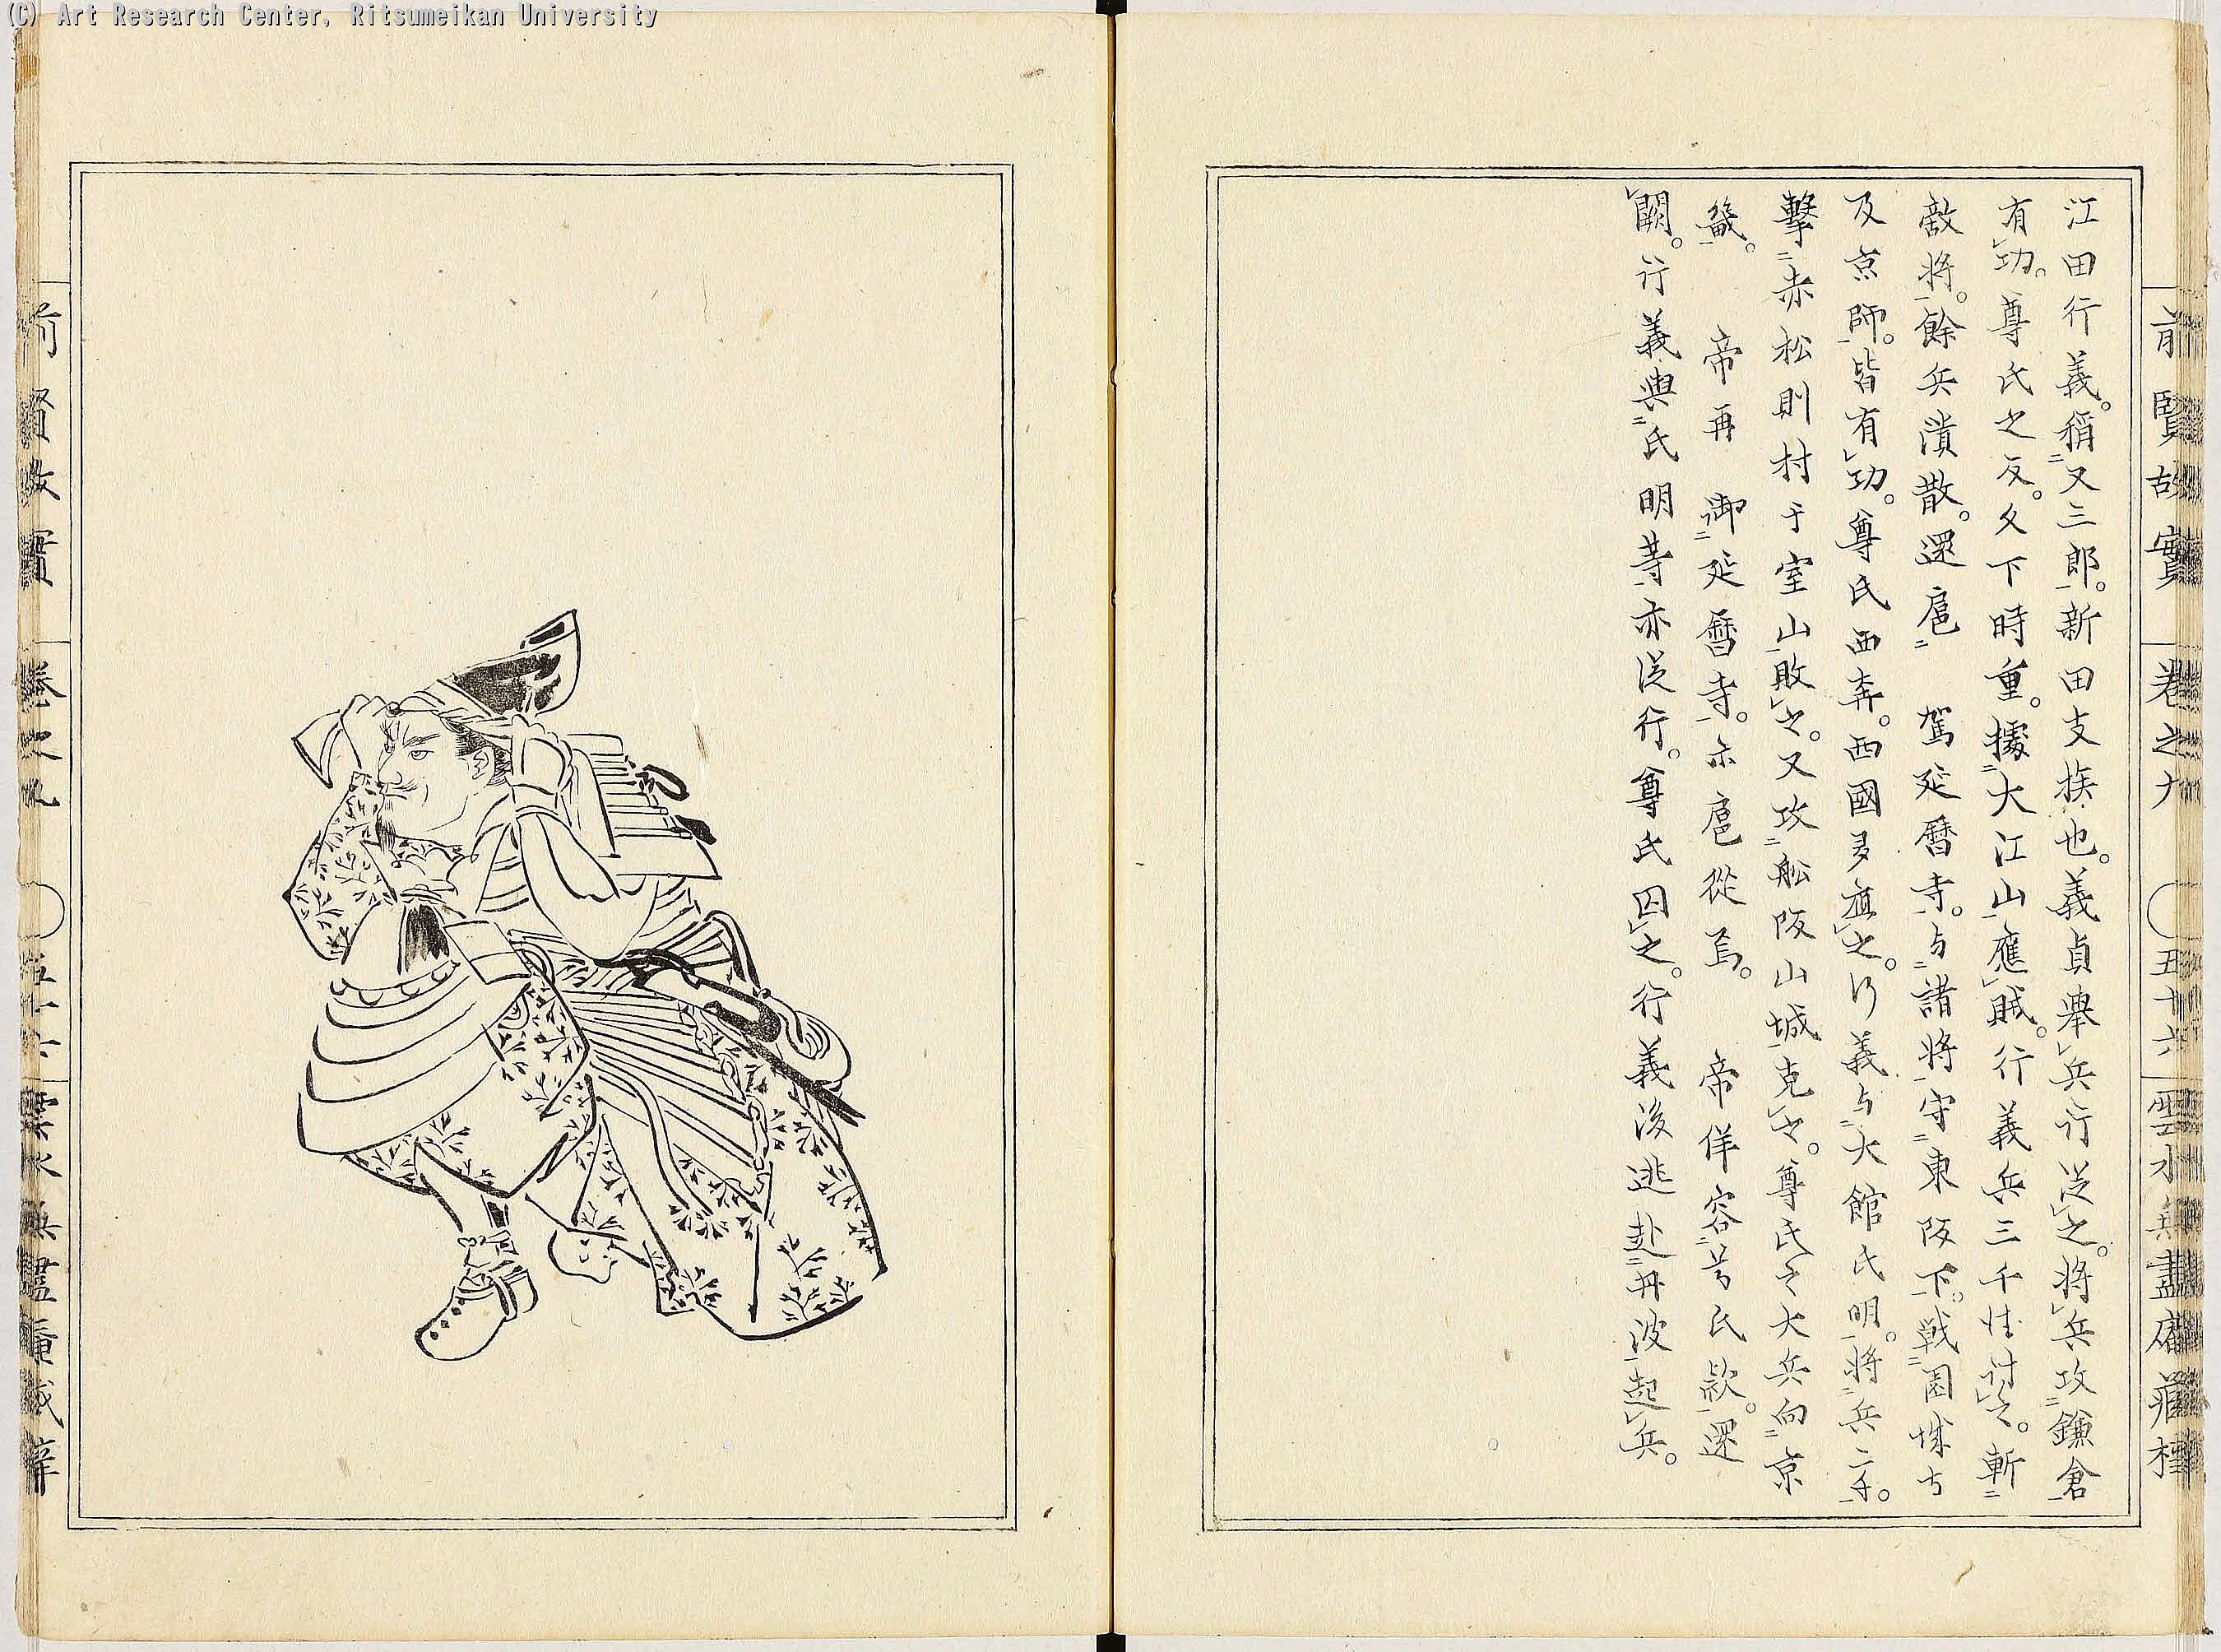 (C) Art Research Center, Ritsumeikan University
前賢故實 卷之九 〇五十六 雲水無盡庵藏梓
江田行義。稱又三郎。新田支族也。義貞舉兵行從之。將兵攻鎌倉
有功。尊氏之反。久下時重。據大江山應賊。行義兵三千往討之。斬
敵將。餘兵潰散。還扈 駕延曆寺。与諸將守東阪下。戰園城寺
及京師。皆有功。尊氏西奔。西國多應之。行義与大館氏明。將兵二千。
擊赤松則村于室山敗之。又攻船阪山城克之。尊氏之大兵向京
畿。 帝再 御延曆寺。亦扈從焉。 帝佯容尊氏款。還
闕。行義與氏明等亦從行。尊氏囚之。行義後逃赴丹波起兵。
前賢故實 卷之九 〇五十六 雲水無盡庵藏梓